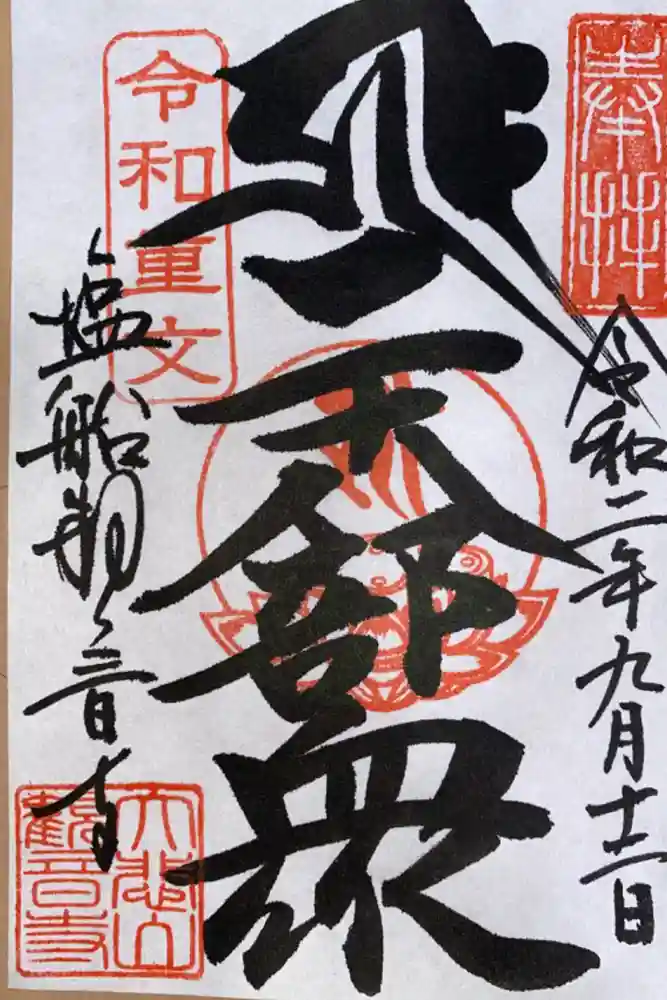 奉拝
令和二年九月十二日
二十八部衆
令和重文
塩船観音寺
大悲山
観音寺